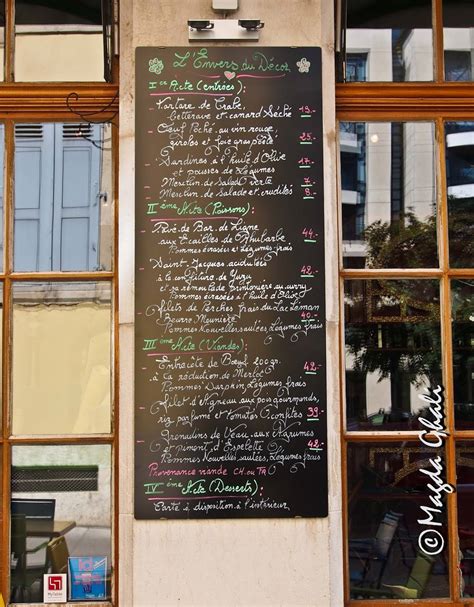 L'Envers du Décor
I er Acte (entrées):
Tartare de Crabe,
Betterave et canard Séché 19.-
Oeuf Poché au vin rouge,
girolles et foie gras poêlé 25.-
Sardines à l'huile d'Olive
et pousses de Légumes 17.-
Mesclun de Salade verte 7.-
Mesclun de Salade et crudités 9.-
II ème Acte (Poissons):
Pavé de Bar de Ligne 44.-
aux Ecailles de Rhubarbe
Pommes écrasées et Légumes frais
Saint Jacques acidulées
à la confiture de Yuzu 42.-
et sa remoulade Printanière au curry
Pommes écrasées à l'huile d'Olive
filets de Perches frais du Lac Léman
Beurre Meunière 40.-
Pommes Nouvelles sautées, Légumes frais
III ème Acte (Viandes):
Entrecôte de Boeuf 200gr. 42.-
à la réduction de Merlot
Pommes Darphin, Légumes frais
filet d'Agneau aux pois gourmands,
riz parfumé et Tomates Confites 39.-
Grenadins de Veau aux Agrumes
et piment d'Espelette 42.-
Pommes Nouvelles sautées, Légumes frais
Provenance viande CH. ou
IV ème Acte (Desserts):
Carte à disposition à l'intérieur
© Magda Ghali